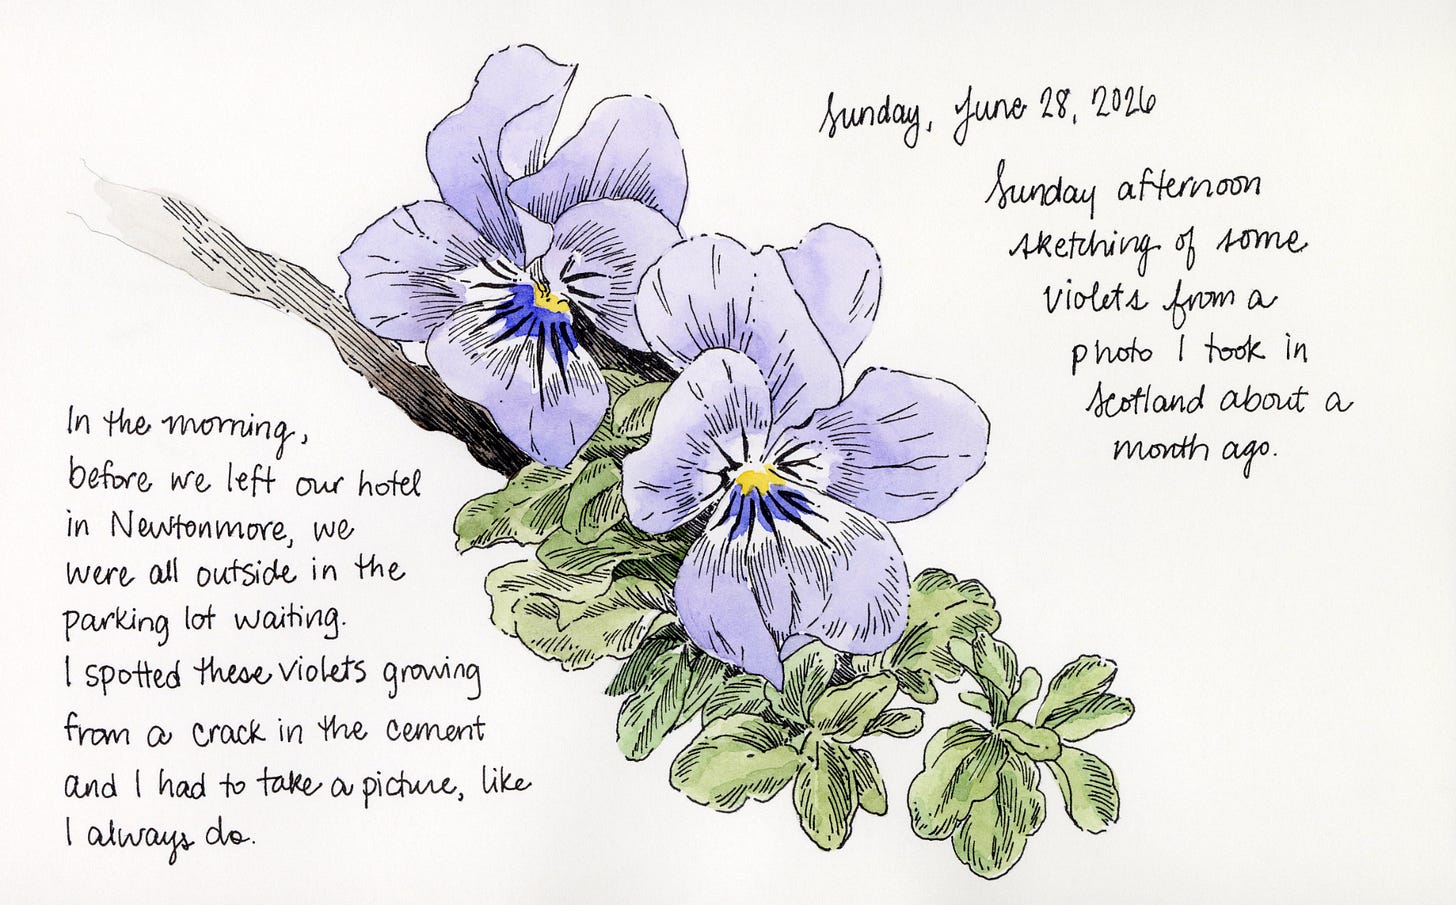 Sunday, June 28, 2026
Sunday afternoon
sketching of some
violets from a
photo I took in
Scotland about a
month ago.
In the morning,
before we left our hotel
in Newtonmore, we
were all outside in the
parking lot waiting.
I spotted these violets growing
from a crack in the cement
and I had to take a picture, like
I always do.